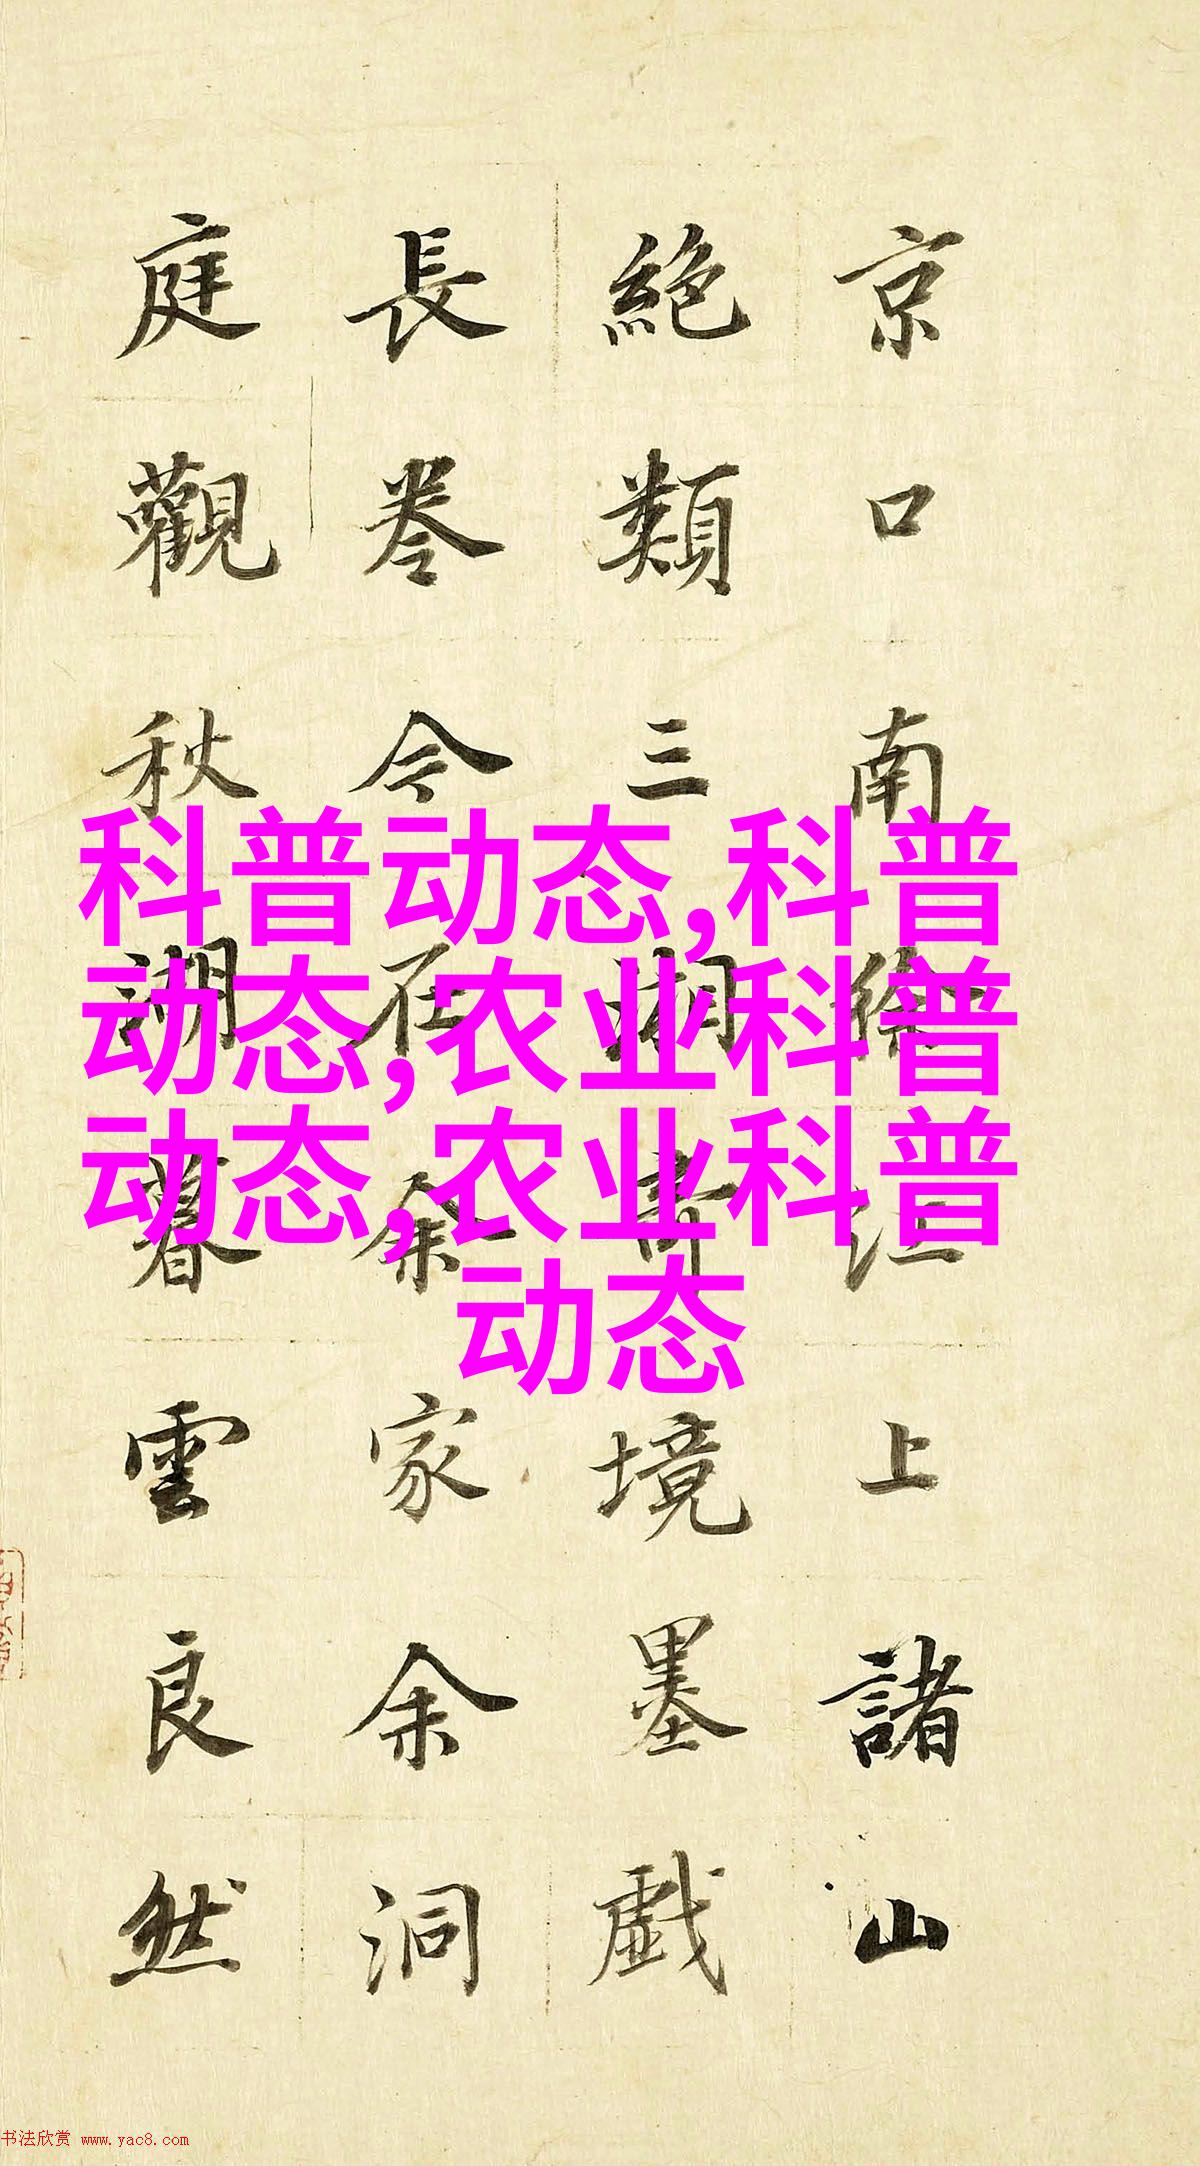 京口南徐江上諸山
絶類三湘奇境墨戲
長卷今在余家余洞
庭觀秋湖暮雲良然
科普动态,科普
动态,农业科普
动态,农业科普
动态
书法欣赏 www.yac8.com